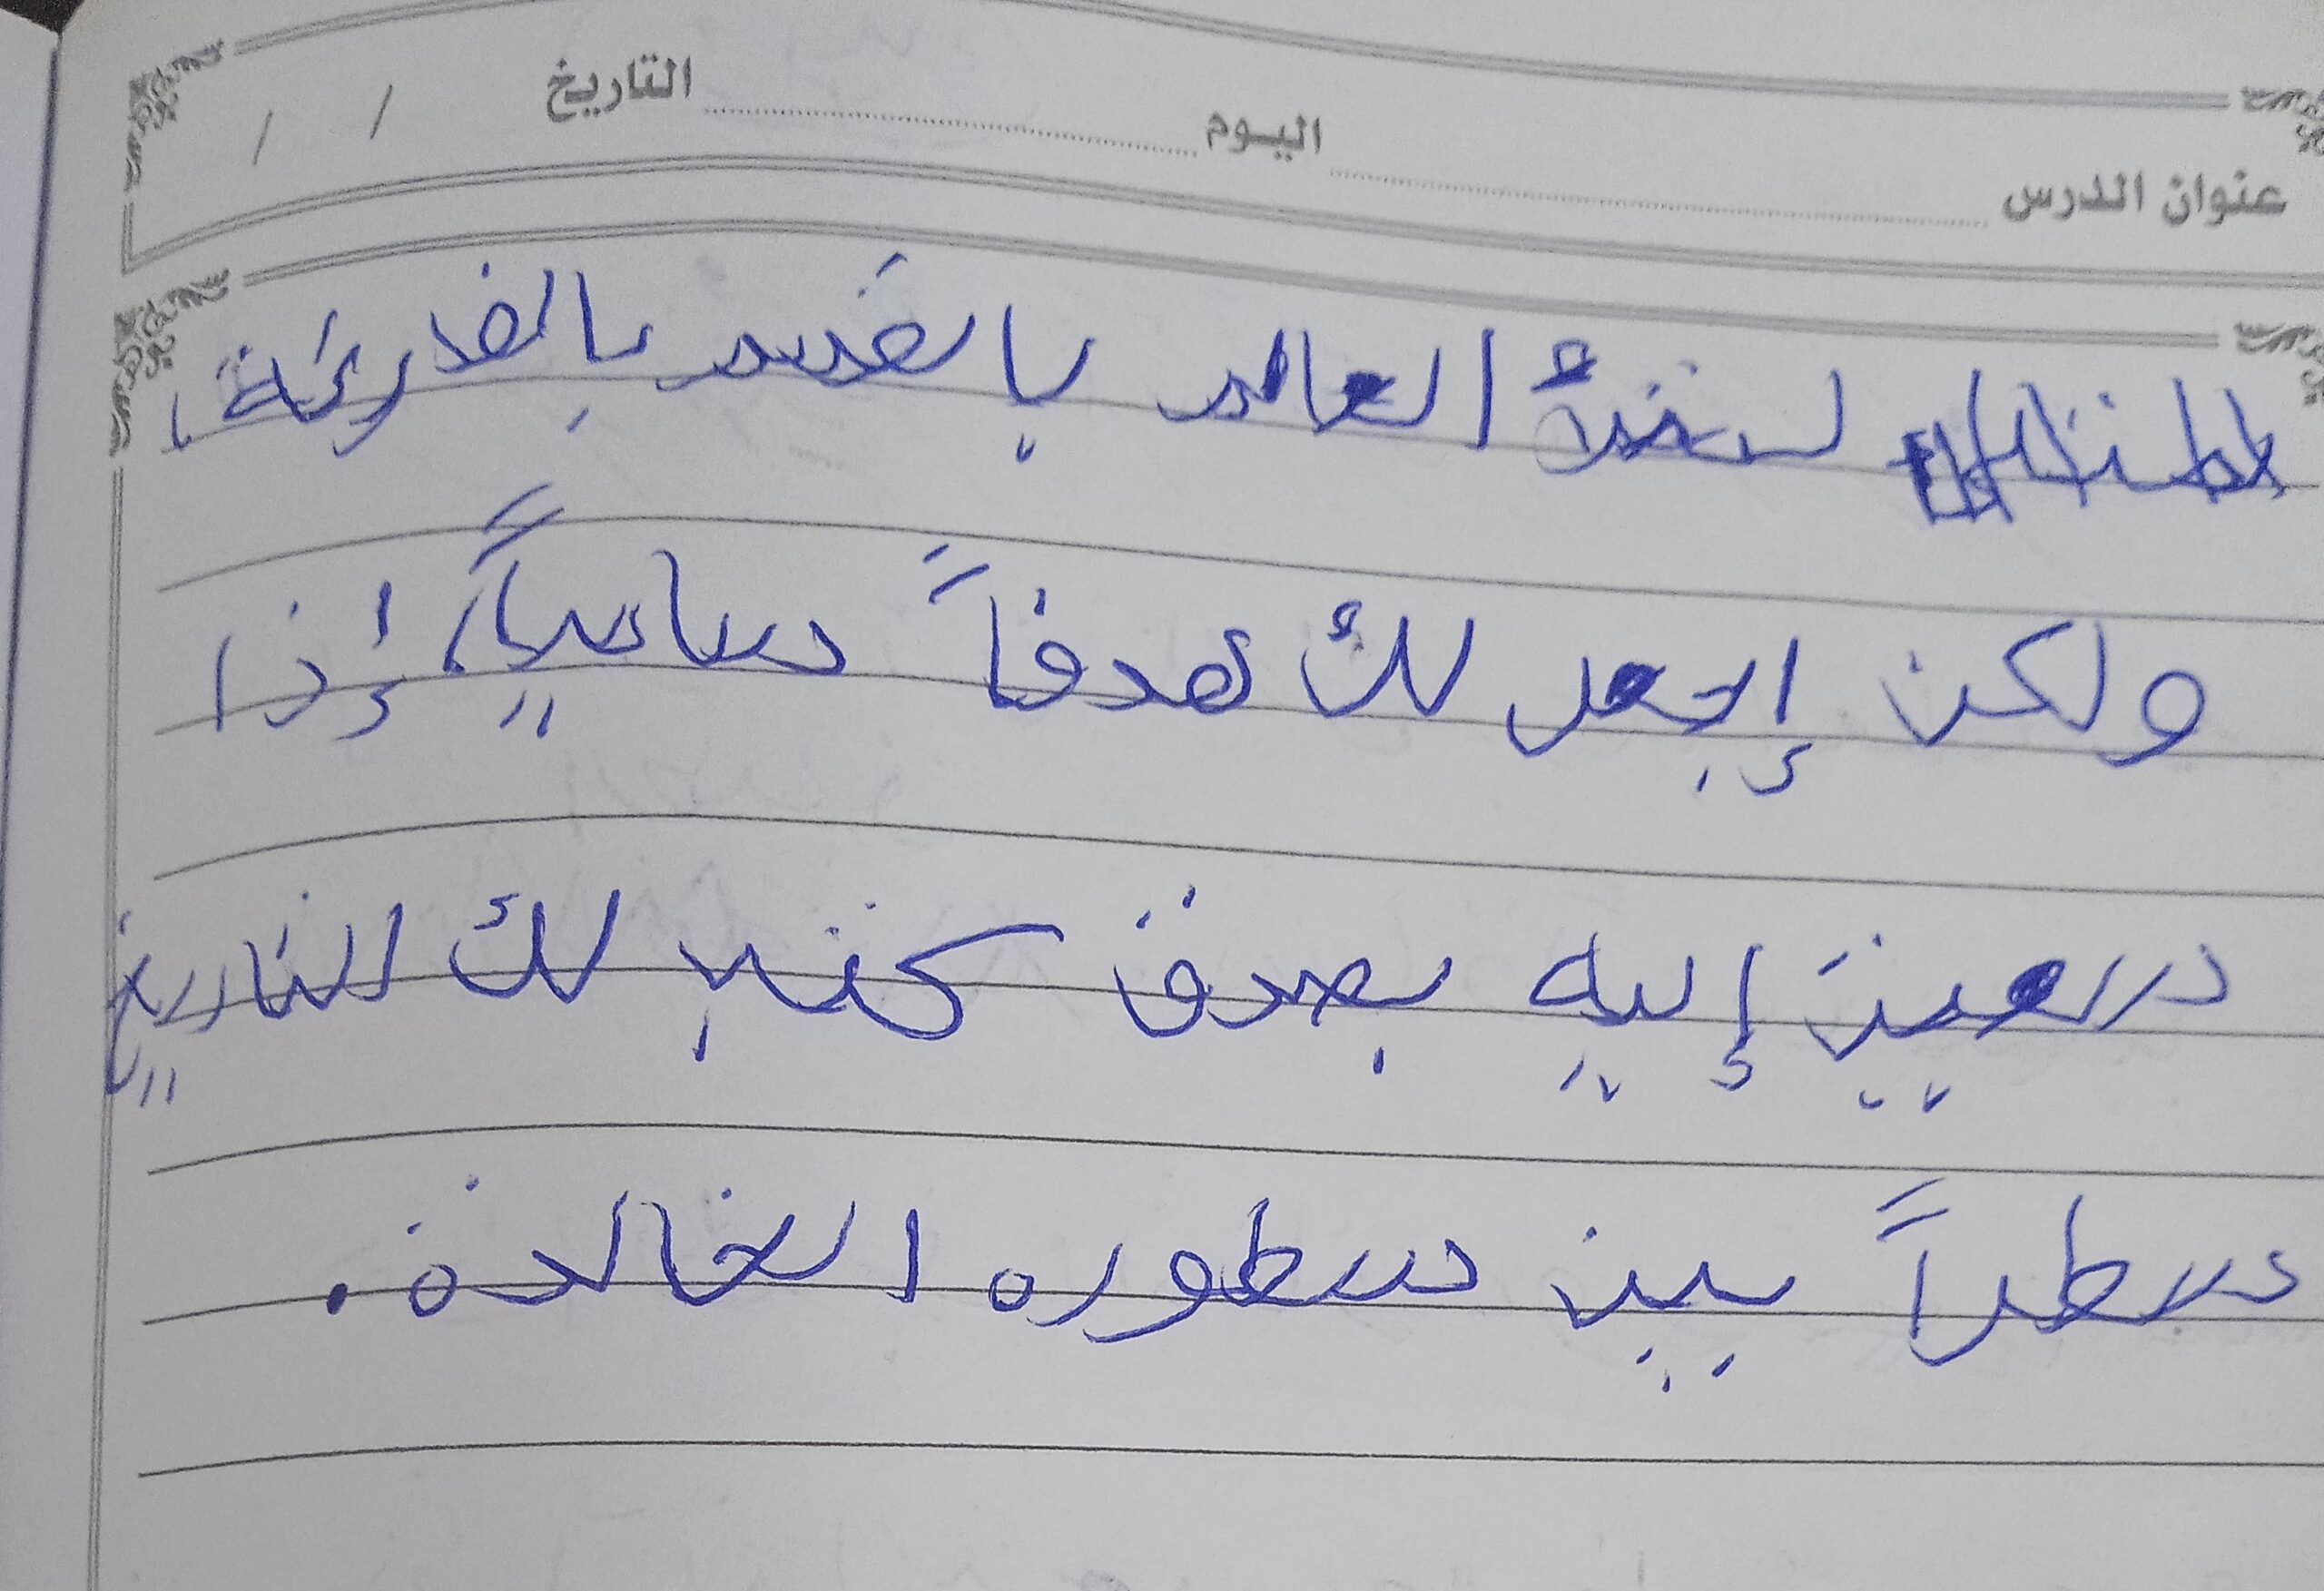 عنوان الدرس اليوم التاريخ / /
العالم
ولكن إجعل لك هدفاً سامياً، إذا
سعيت إليه بصدق كتب لك التاريخ
سطراً بين سطوره الخالدة.